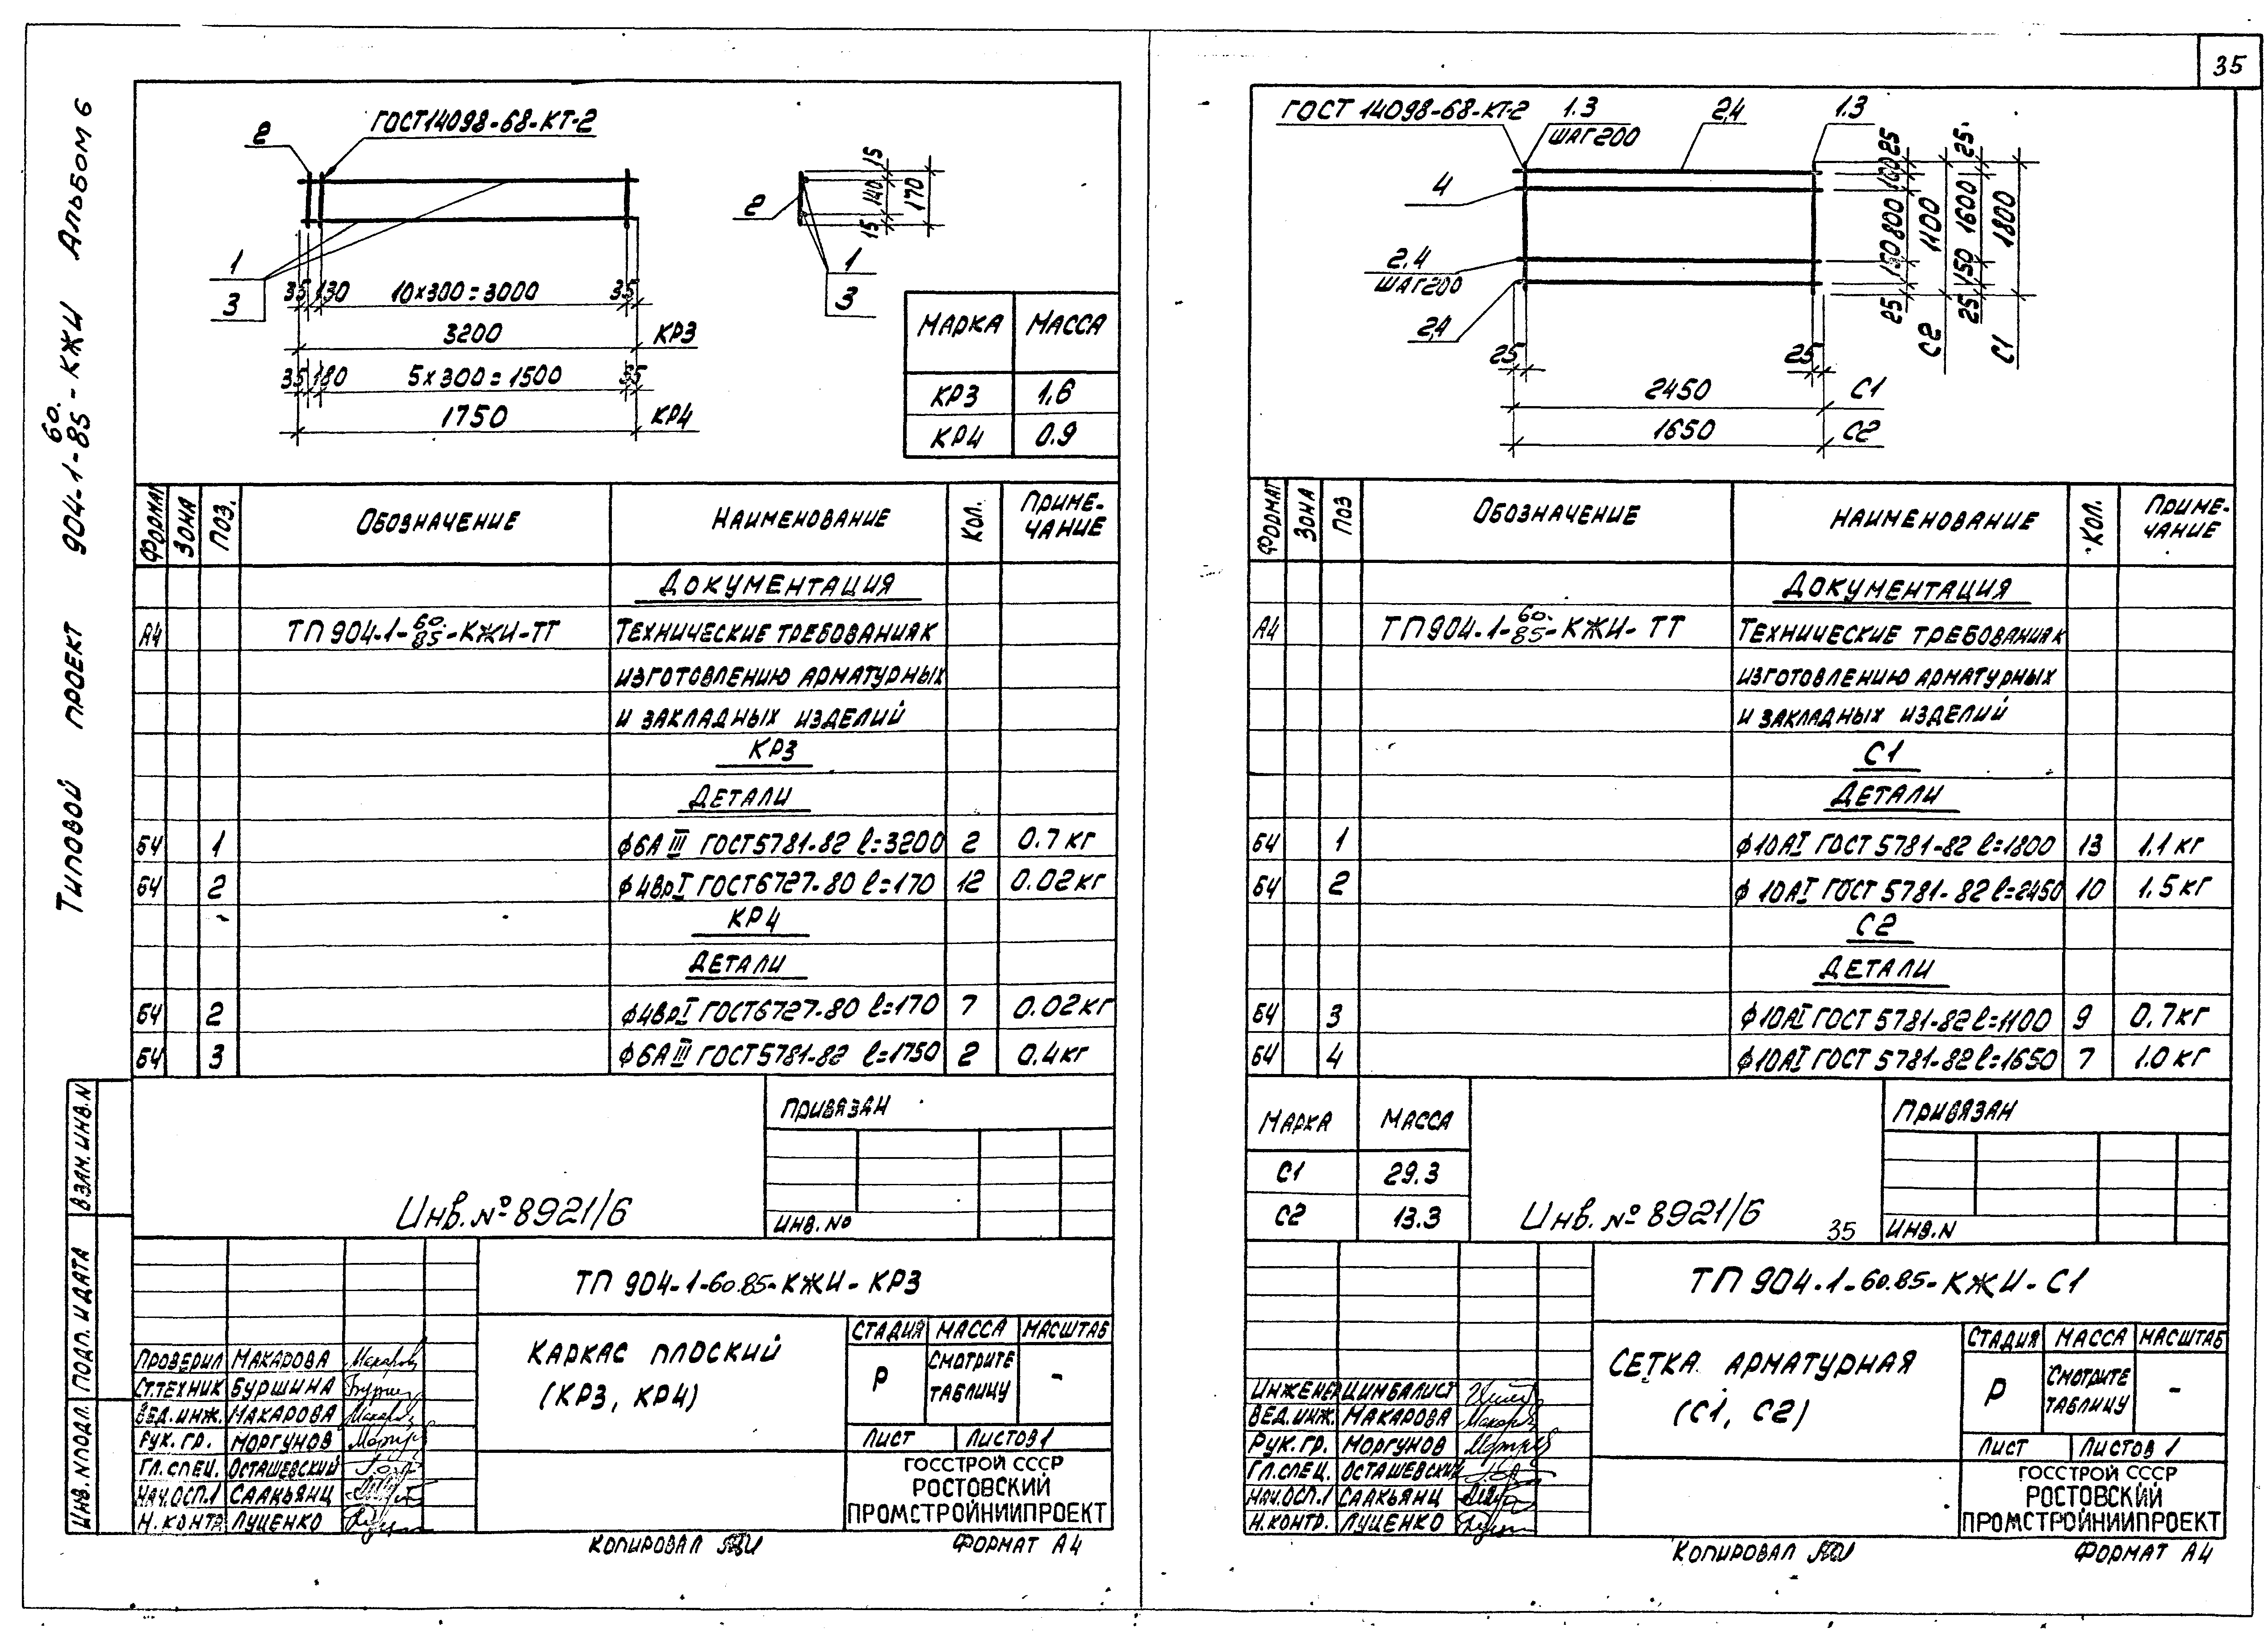 35
Типовой проект 904-1-60.85-КЖИ Альбом 6
2
ГОСТ14098-68-КТ-2
1
3
35 130 10х300=3000 35
3200 КР3
35 180 5х300=1500 35
1750 КР4
2
15 140 15
170
1
3
Марка Масса
КР3 1,6
КР4 0.9
Формат Зона Поз. Обозначение Наименование Кол. Примечание
Документация
А4 ТП 904-1-60.85-КЖИ-ТТ Технические требования к
изготовлению арматурных
и закладных изделий
КР3
Детали
БЧ 1 ф6АIII ГОСТ5781-82 ℓ=3200 2 0.7кг
БЧ 2 ф4ВрI ГОСТ6727-80 ℓ=170 12 0.02кг
КР4
Детали
БЧ 2 ф4ВрI ГОСТ6727-80 ℓ=170 7 0.02кг
БЧ 3 ф6АIII ГОСТ5781-82 ℓ=1750 2 0.4кг
Привязан
Инв. №
Инв. № 8921/6
ТП 904-1-60.85-КЖИ-КР3
Каркас плоский
(КР3, КР4)
Стадия Масса Масштаб
Р Смотрите таблицу -
Лист Листов 1
ГОССТРОЙ СССР
РОСТОВСКИЙ
ПРОМСТРОЙНИИПРОЕКТ
Проверил Макарова
Ст.техник Буршина
Вед.инж. Макарова
Рук. гр. Моргунов
Гл.спец. Осташевский
Нач.ОСП.1 Саакьянц
Н.контр Луценко
Взам. инв. N
Подп. и дата
Инв. N подл.
Копировал
Формат А4
ГОСТ 14098-68-КТ-2
1.3
шаг 200
2,4
1.3
4
2,4
шаг 200
2,4
25 25
2450 С1
1650 С2
25 100 800 150 25
1100 С2
25 1600 150 25
1800 С1
Формат Зона Поз Обозначение Наименование Кол. Примечание
Документация
А4 ТП904-1-60.85-КЖИ-ТТ Технические требования к
изготовлению арматурных
и закладных изделий
С1
Детали
БЧ 1 ф10АI ГОСТ 5781-82 ℓ=1800 13 1.1кг
БЧ 2 ф10АI ГОСТ 5781-82 ℓ=2450 10 1.5кг
С2
Детали
БЧ 3 ф10АI ГОСТ 5781-82 ℓ=1100 9 0.7кг
БЧ 4 ф10АI ГОСТ 5781-82 ℓ=1650 7 1.0кг
Марка Масса
С1 29.3
С2 13.3
Инв. № 8921/6
35
Привязан
Инв. N
ТП 904-1-60.85-КЖИ-С1
Сетка арматурная
(С1, С2)
Стадия Масса Масштаб
Р Смотрите таблицу -
Лист Листов 1
ГОССТРОЙ СССР
РОСТОВСКИЙ
ПРОМСТРОЙНИИПРОЕКТ
Инженер Цимбалист
Вед.инж. Макарова
Рук.гр. Моргунов
Гл.спец. Осташевский
Нач.ОСП.1 Саакьянц
Н.контр. Луценко
Копировал
Формат А4